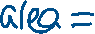 area =